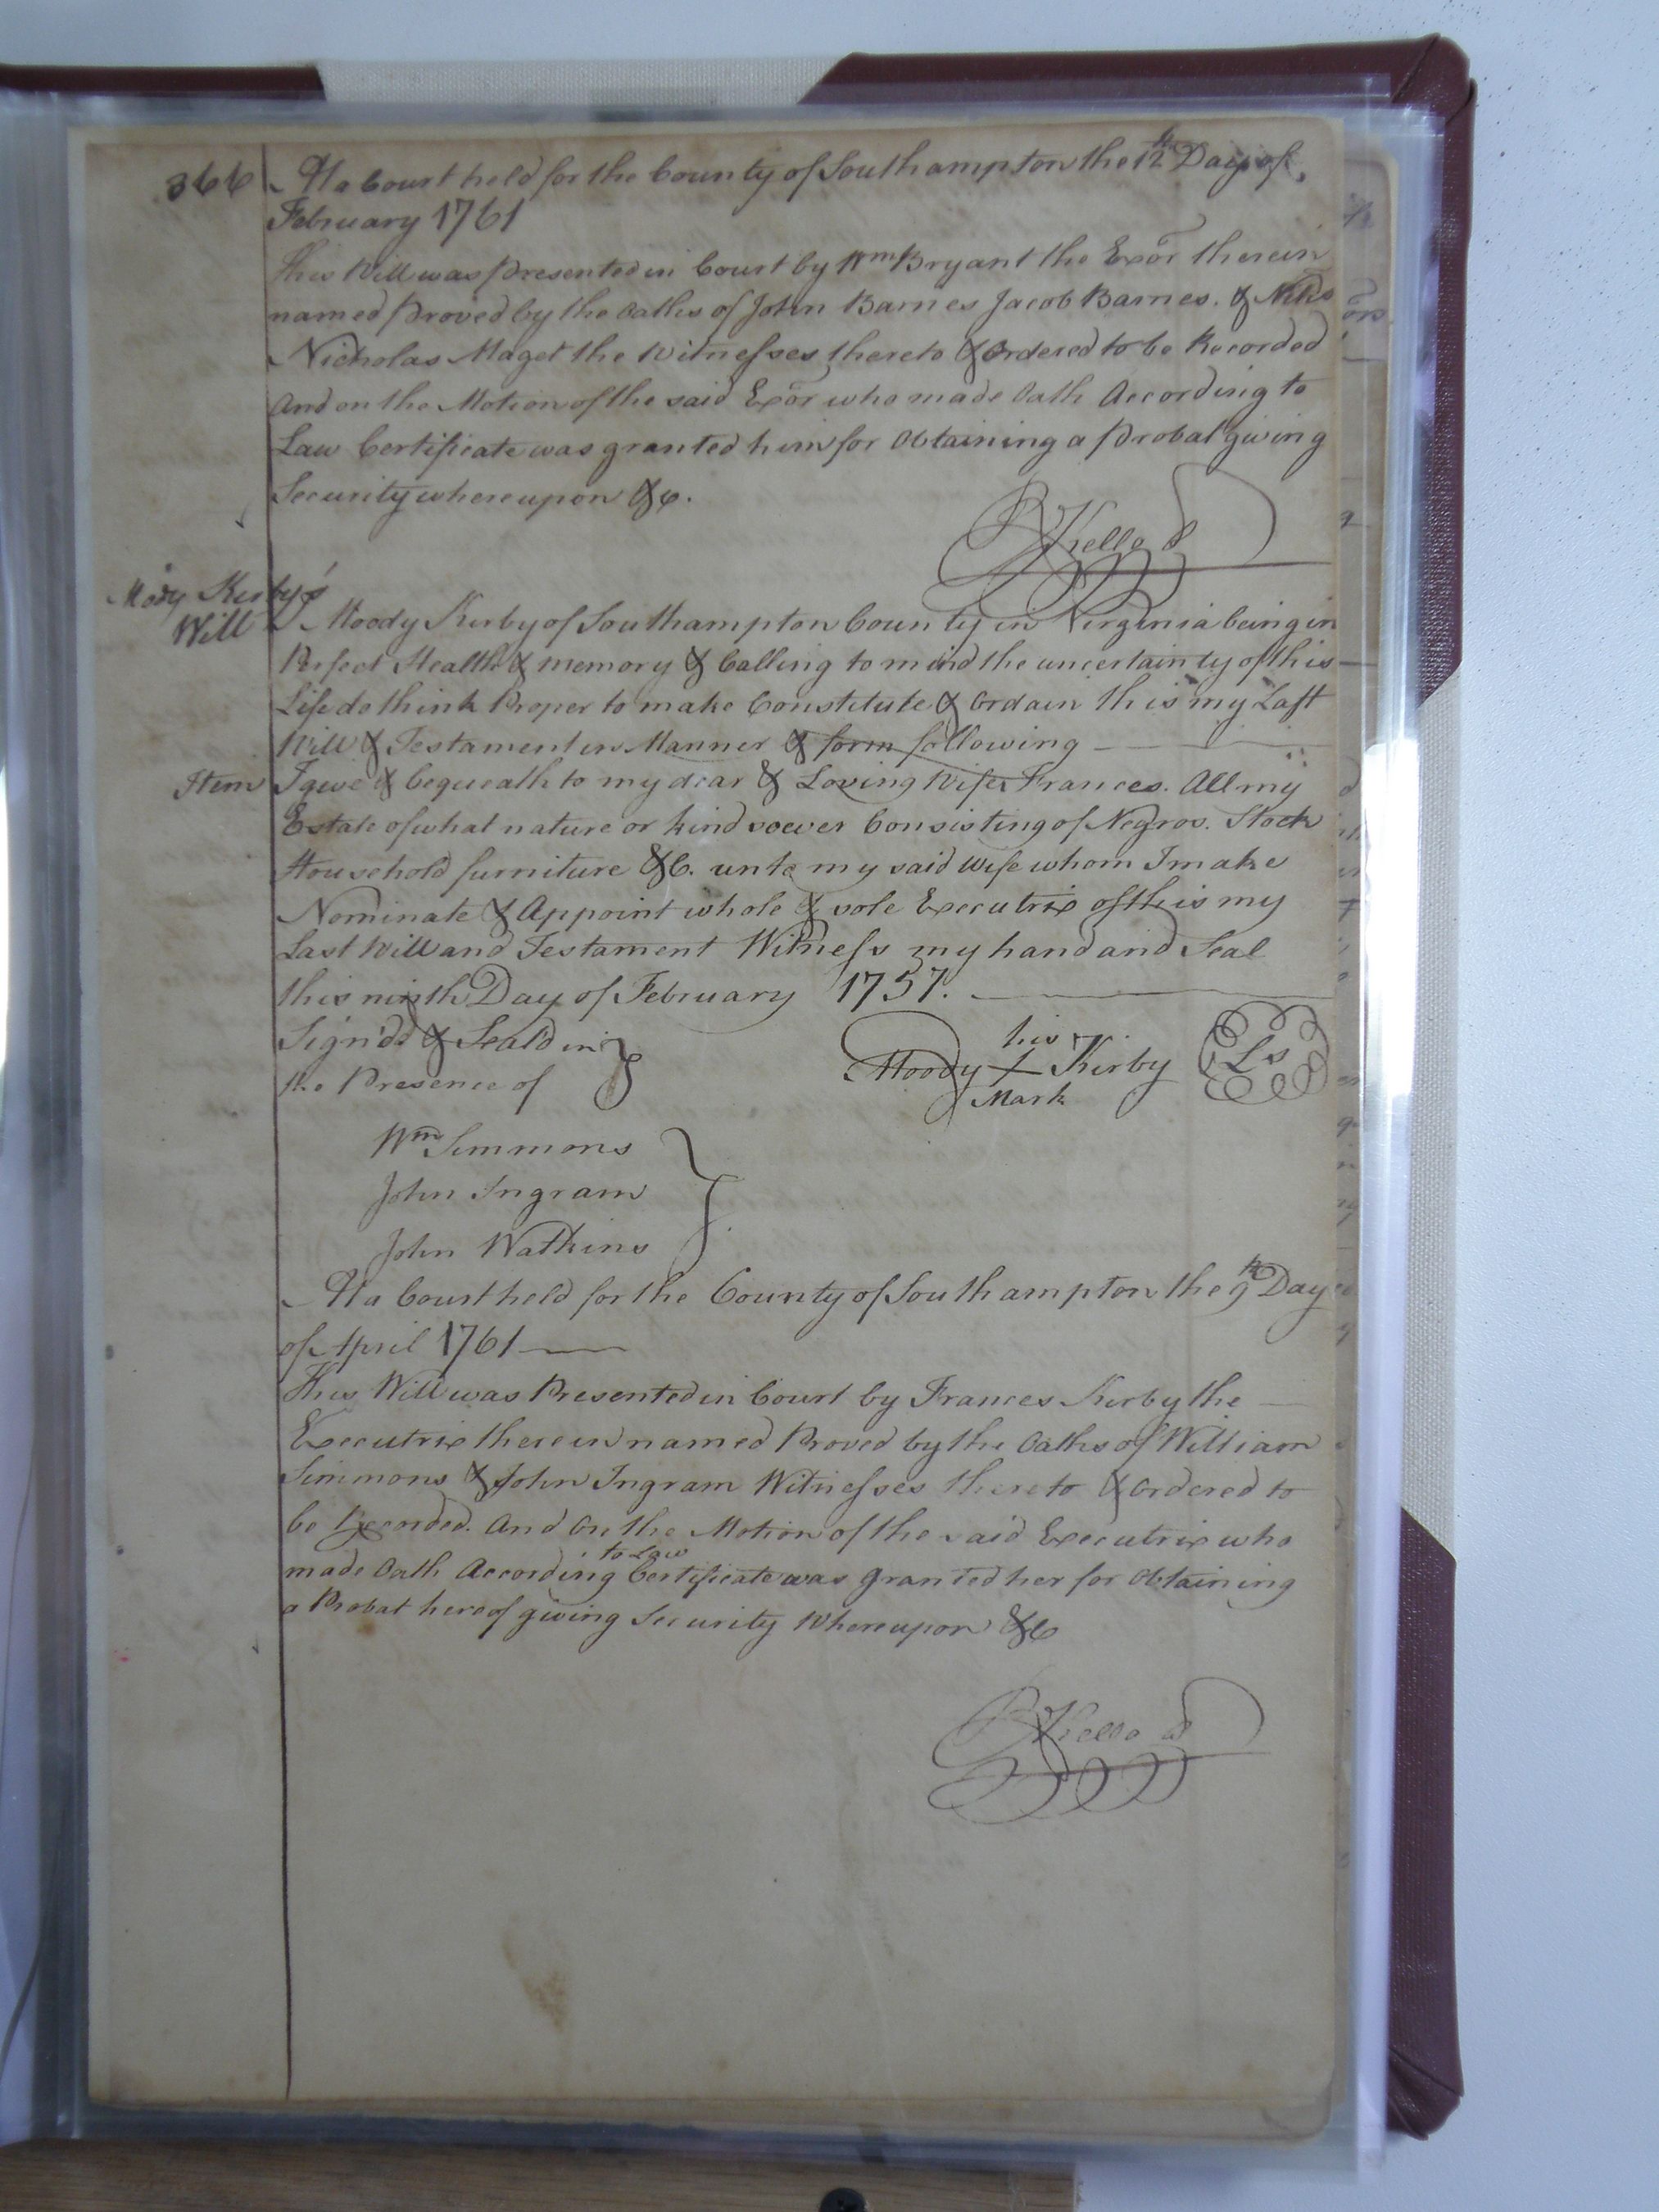 366
At a Court held for the County of Southampton the 12th Day of
February 1761
This Will was presented in Court by Wm Bryant the Exor therein
named proved by the Oaths of John Barnes Jacob Barnes. &
Nicholas Maget the Witnesses thereto & Ordered to be Recorded
And on the Motion of the said Exor who made Oath According to
Law Certificate was granted him for Obtaining a Probat giving
Security whereupon &c.
R Kello
Mody Kirby's
Will
I Moody Kirby of Southampton County in Virginia being in
Perfect Health & memory & Calling to mind the uncertainty of this
Life do think Proper to make Constitute & Ordain this my Last
Will & Testament in Manner & form following
Item I give & bequeath to my dear & Loving Wife Frances. All my
Estate of what nature or kind soever Consisting of Negros. Stock
Household furniture &C. unto my said Wife whom I make
Nominate & Appoint whole & sole Executrix of this my
Last Will and Testament Witness my hand and Seal
this ninth Day of February 1757.
Sign'd & Seald in
the Presence of
his
Moody + Kirby Ls
Mark
Wm Simmons
John Ingram
John Watkins
At a Court held for the County of Southampton the 9th Day
of April 1761
This Will was Presented in Court by Frances Kirby the
Executrix therein named Proved by the Oaths of William
Simmons & John Ingram Witnesses thereto & Ordered to
be Recorded. And On the Motion of the said Executrix who
made Oath According to Law Certificate was granted her for Obtaining
a Probat hereof giving Security Whereupon &C
R Kello